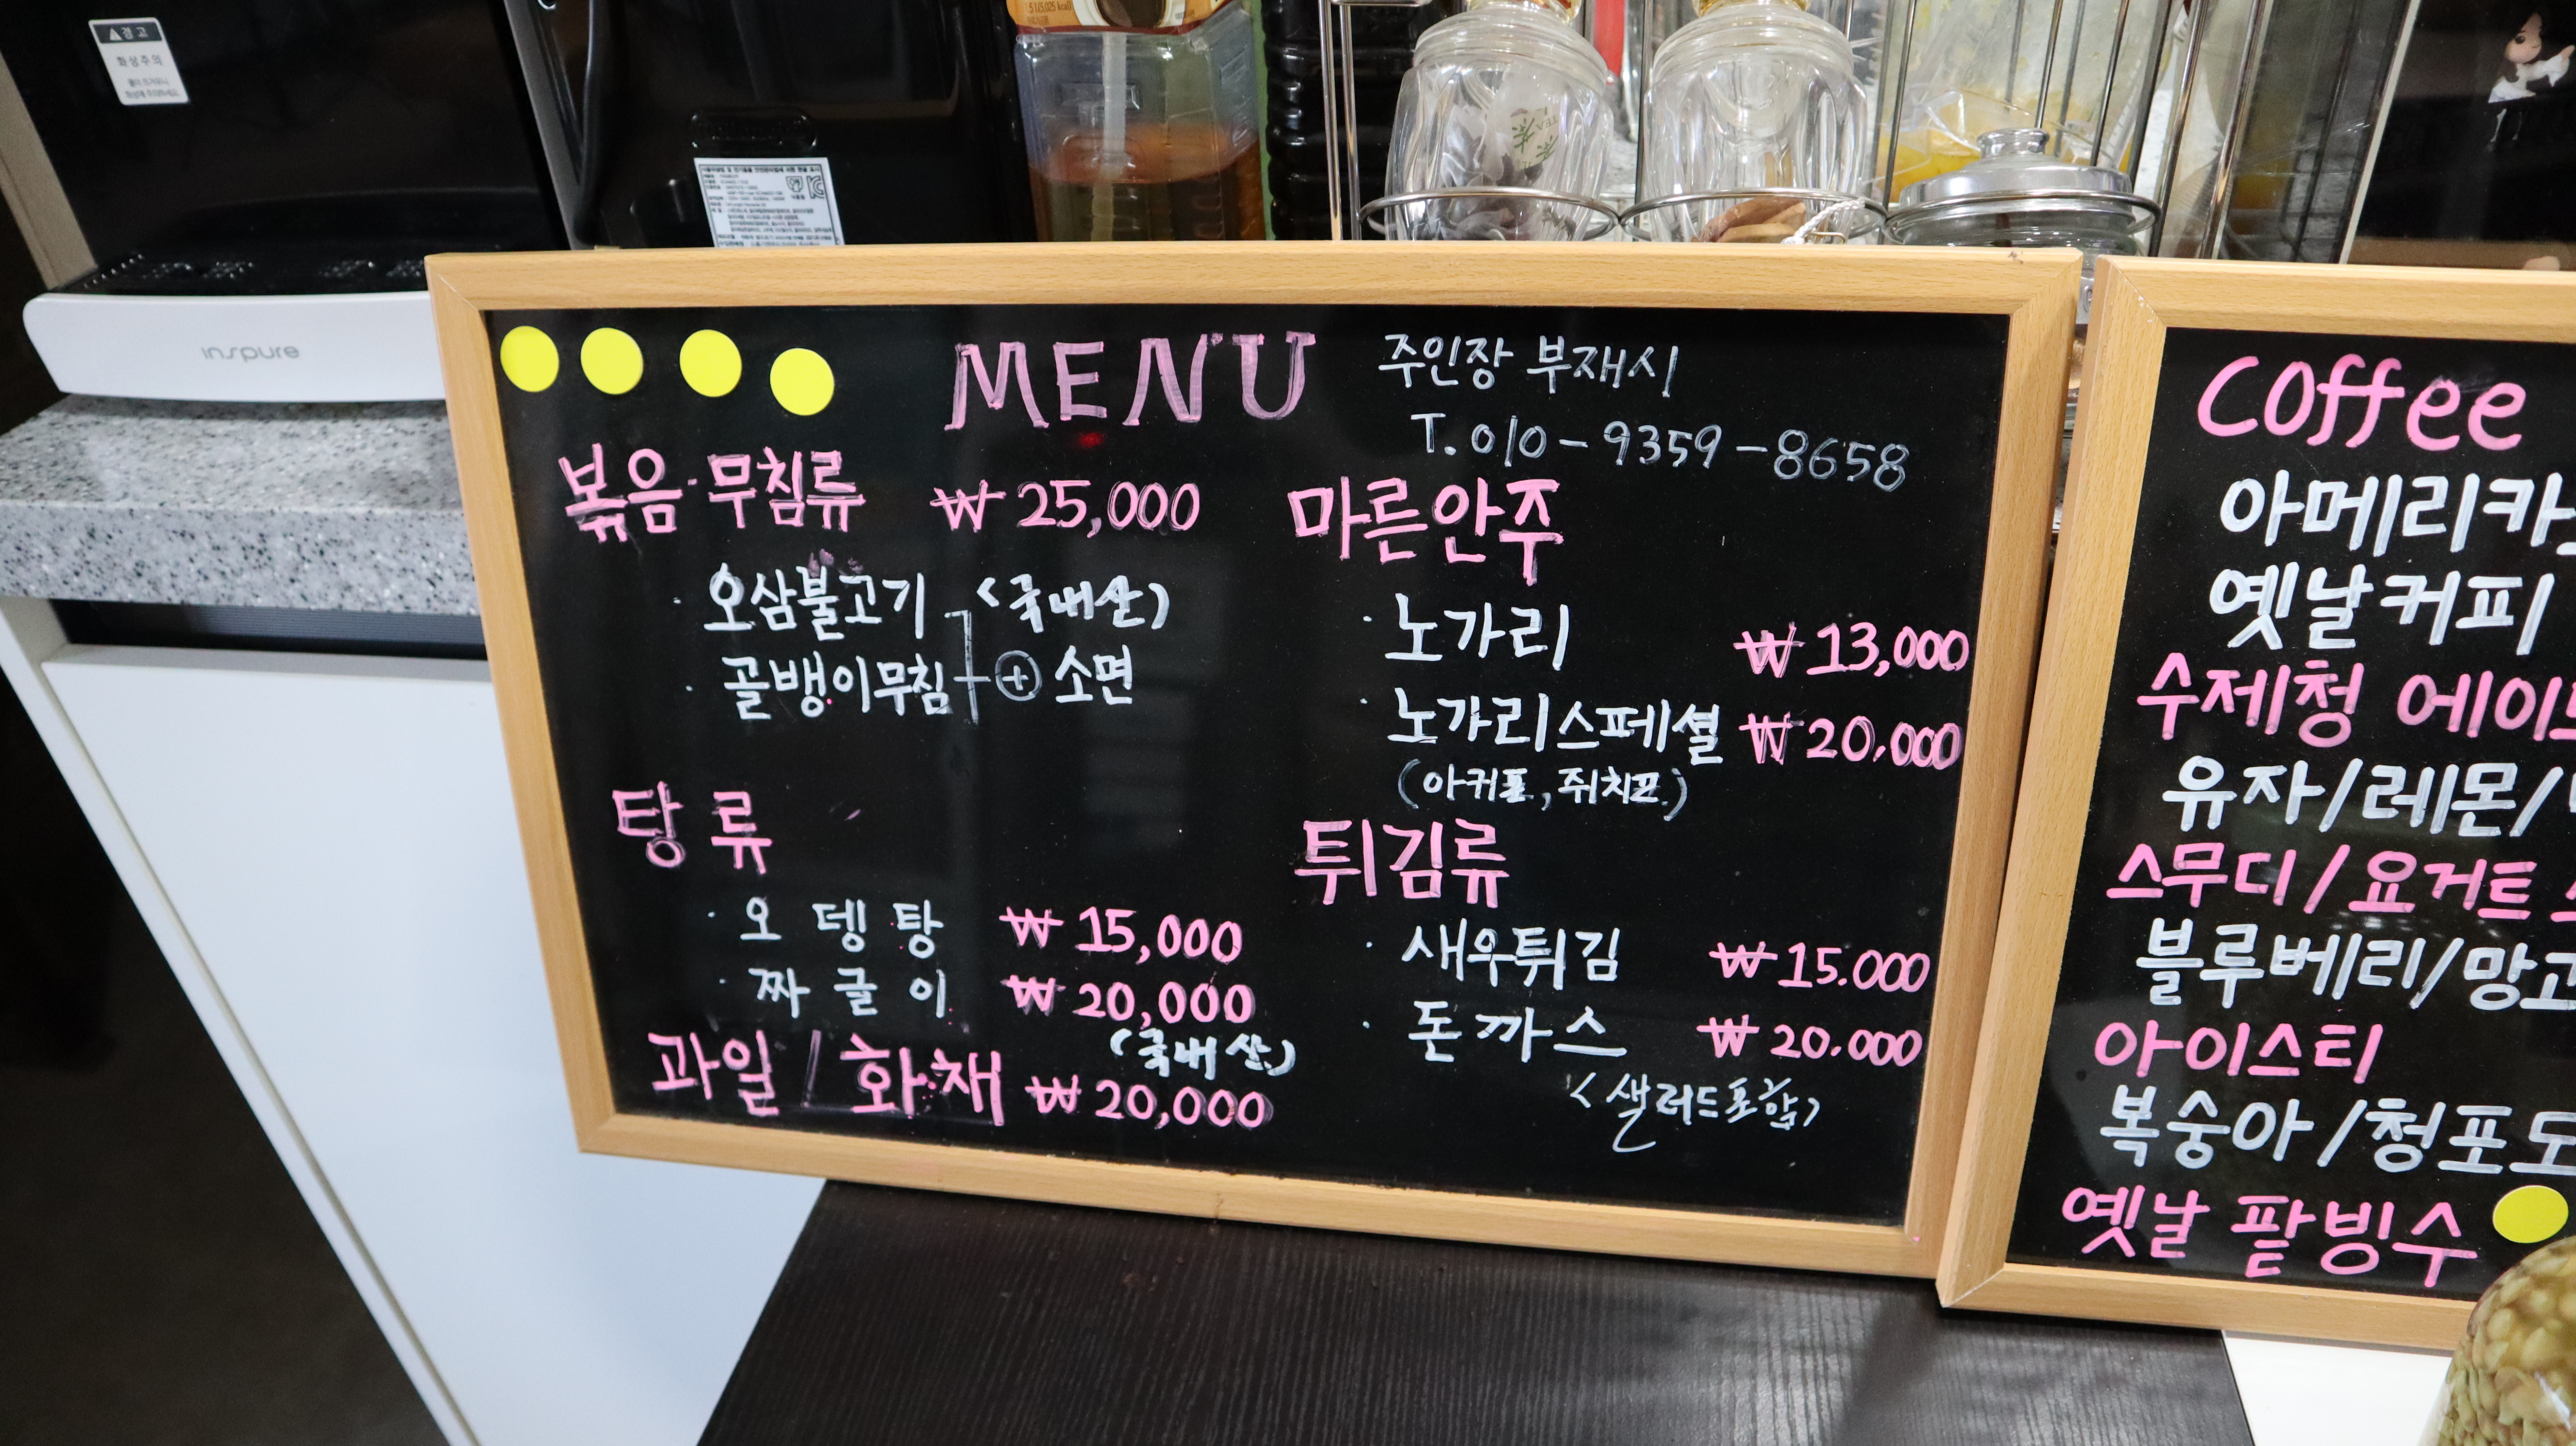 경고
화상주의
inspure
MENU
주인장 부재시
T. 010-9359-8658
볶음·무침류 ₩25,000
· 오삼불고기 (국내산)
· 골뱅이무침 ⊕ 소면
탕류
· 오뎅탕 ₩15,000
· 짜글이 ₩20,000
(국내산)
과일/화채 ₩20,000
마른안주
· 노가리 ₩13,000
· 노가리스페셜 ₩20,000
(아귀포, 쥐치포)
튀김류
· 새우튀김 ₩15.000
· 돈까스 ₩20.000
(샐러드포함)
Coffee
아메리카
옛날커피
수제청 에이
유자/레몬/
스무디/요거트
블루베리/망고
아이스티
복숭아/청포도
옛날 팥빙수